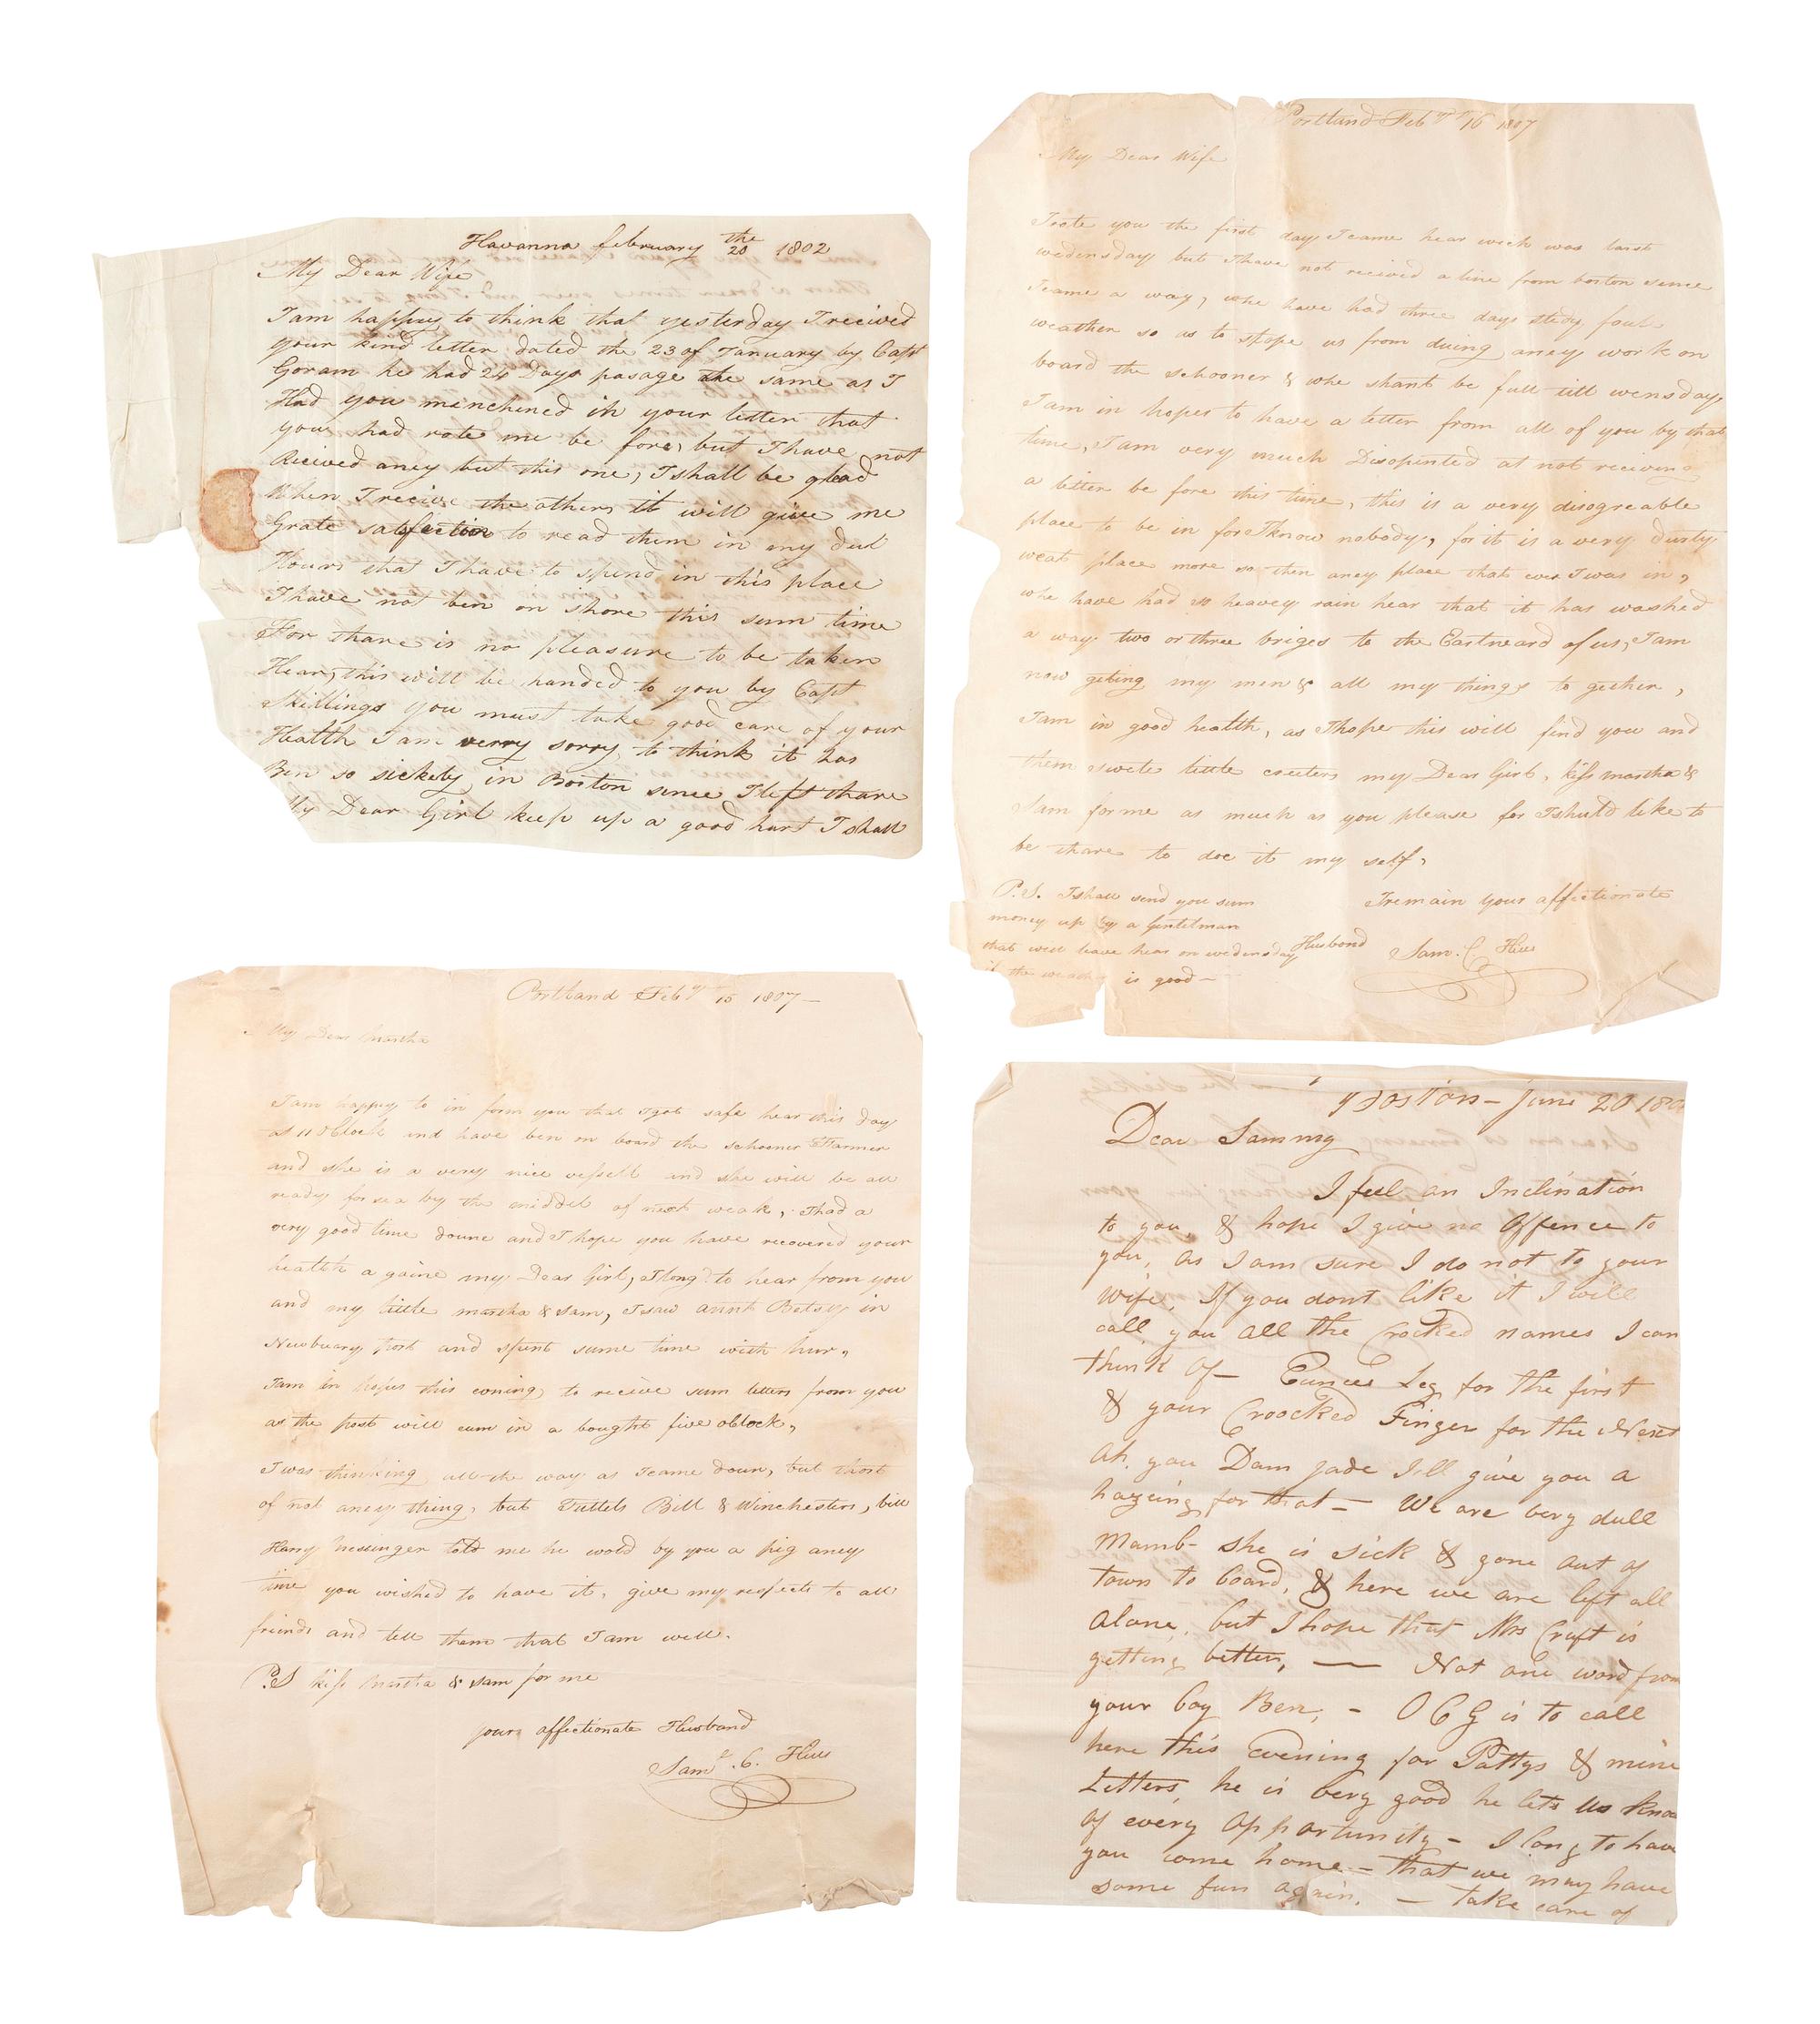 Havanna february the 20 1802
My Dear Wife
I am happy to think that yesterday I recived
your kind letter dated the 23 of January by Capt
Goram he had 24 Days pasage the same as I
Had you menchened in your letter that
you had rote me be fore, but I have not
Recived aney but this one, I shall be glad
When I recive the others it will give me
Grate to read them in my dul
Hours that I have to spend in this place
I have not ben on shore this sum time
For thare is no pleasure to be taken
Hear, this will be handed to you by Capt
Skillings you must take good care of your
Health I am verry sorry to think it has
Ben so sickely in Boston since I left thare
My Dear Girl keep up a good hart I shall
Portland Feby 16 1807
My Dear Wife
I rote you the first day I came hear wich was last
wedensday but I have not recived a line from boston sence
I came a way, whe have had three days stedy foul
weather so as to stope us from duing aney work on
board the schooner & whe shant be full till wensday
I am in hopes to have a letter from all of you by that
time, I am very much Disopinted at not reciving
a letter be fore this time, this is a very disogreable
place to be in for I know nobody, for it is a very Durty
weat place more so then aney place that ever I was in,
whe have had so heavey rain hear that it has washed
a way two or three briges to the Eastward of us, I am
now geting my men & all my things to gether,
I am in good health, as I hope this will find you and
them swete little creeters my Dear Girl, kiss martha &
Sam for me as much as you please for I shuld like to
be thare to doe it my self,
I remain your affectionate
Husband Sam. C Hews
P.S. I shall send you sum
money up by a Gentelman
that will leave hear on wedensday
if the weather is good —
Portland Feby 15 1807 —
My Dear Martha
I am happy to in form you that I got safe hear this day
at 11 oClock and have ben on board the schooner Farmer
and she is a very nice vessell and she will be all
ready for sea by the middel of next weak, I had a
very good time doune and I hope you have recovered your
health a gaine my Dear Girl, I long to hear from you
and my little martha & Sam, I saw aunt Betsy in
Newbuary port and spent sume time with hur,
I am in hopes this evning to recive sum letters from you
as the post will cum in a bought five oClock,
I was thinking all the way as I came doun, but thort
of not aney thing, but Tuttels Bill & Winchesters, bill
Harry told me he wold by you a pig aney
time you wished to have it, give my respects to all
friends and tell them that I am well.
P.S kiss Martha & Sam for me
your affectionate Husband
Saml. C. Hews
Boston — June 20 180
Dear Sammy
I feel an Inclination
to you, & hope I give no Offence to
you, as I am sure I do not to your
wife, If you dont like it I will
call you all the Crocked names I can
think of — Eunices Leg for the first
& your Croocked Finger for the Next
Ah, you Dam Jade I'll give you a
hazeing for that — We are very dull
Mamb- she is sick & gone out of
town to board, & here we are left all
alone, but I hope that Mrs Craft is
getting better, — Not one word from
your boy Ben, — O C G is to call
here this Evening for Pattys & mine
Letters, he is very good he lets us know
of every opportunity — I long to have
you come home — that we may have
some fun again, — take care of